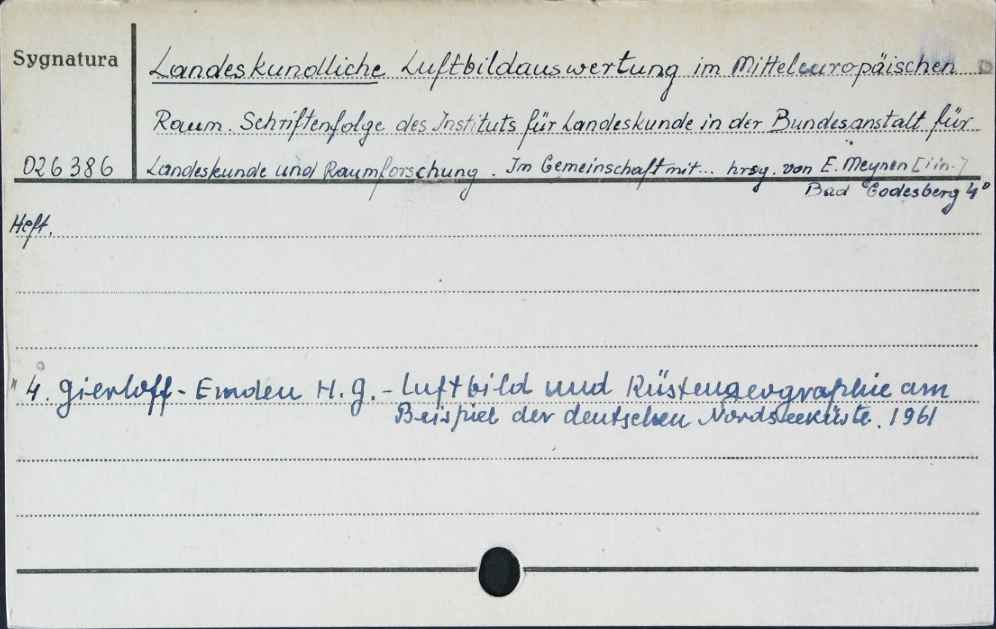 Sygnatura
Landeskundliche Luftbildauswertung im Mitteleuropäischen
Raum. Schriftenfolge des Instituts für Landeskunde in der Bundesanstalt für
D26386
Landeskunde und Raumforschung. Im Gemeinschaft mit... hrsg. von E. Meynen [i in.]
Bad Godesberg 4°
Heft.
" 4. Gierloff-Emden H.G. - Luftbild und Küstengeographie am
Beispiel der deutschen Nordseeküste. 1961